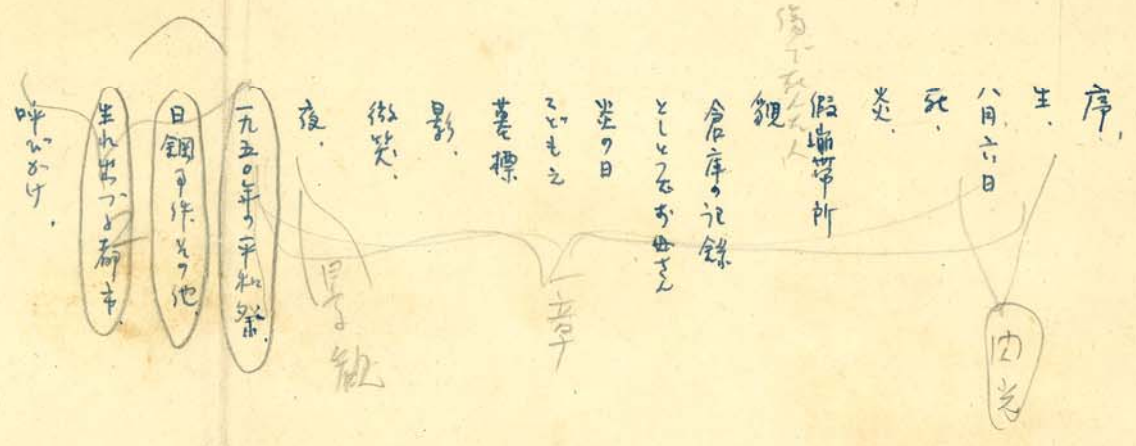 序、
生、
八月六日
死、
炎、
假繃帯所
倉庫の記録
としとつたお母さん
炎の日
こどもえ
墓標
影、
微笑、
夜、
一九五〇年の平和祭、
日鋼事件その他、
生れ出づる都市、
呼びかけ、
閃光
一章
景観